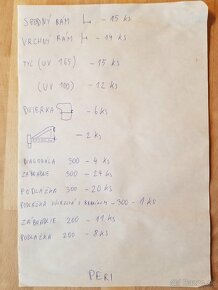 SPODNÝ RÁM - 15 KS
VRCHNÝ RÁM - 14 KS
TYČ (UV 165) - 15 KS
(UV 100) - 12 KS
DVIERKA - 6 KS
- 2 KS
DIAGONÁLA 300 - 4 KS
ZÁBRADLIE 300 - 24 KS
PODLAŽKA 300 - 20 KS
PODLAŽKA S - 300 - 1 KS
ZÁBRADLIE 200 - 11 KS
PODLAŽKA 200 - 8 KS
PERI